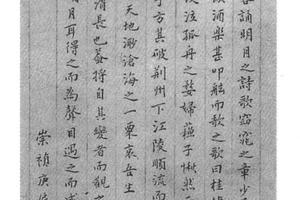 客誦明月之詩歌窈窕之章少
飲酒樂甚叩舷而歌之歌曰桂
泣孤舟之嫠婦蘇子愀然
方其破荊州下江陵順流而
天地渺滄海之一粟哀吾生
消長也蓋將自其變者而觀之
明月耳得之而為聲目遇之而成
崇禎庚